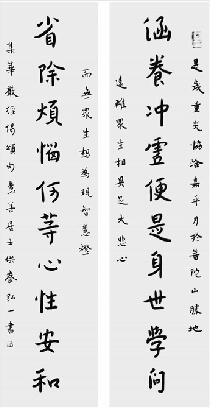 是歲重光協洽嘉平月於普陀山勝地
涵養冲虛便是身世学问
遠離眾生相具足大悲心
而無眾生想為現智慧燈
省除煩惱何等心性安和
集華嚴經偈頌句
居士供養弘一書